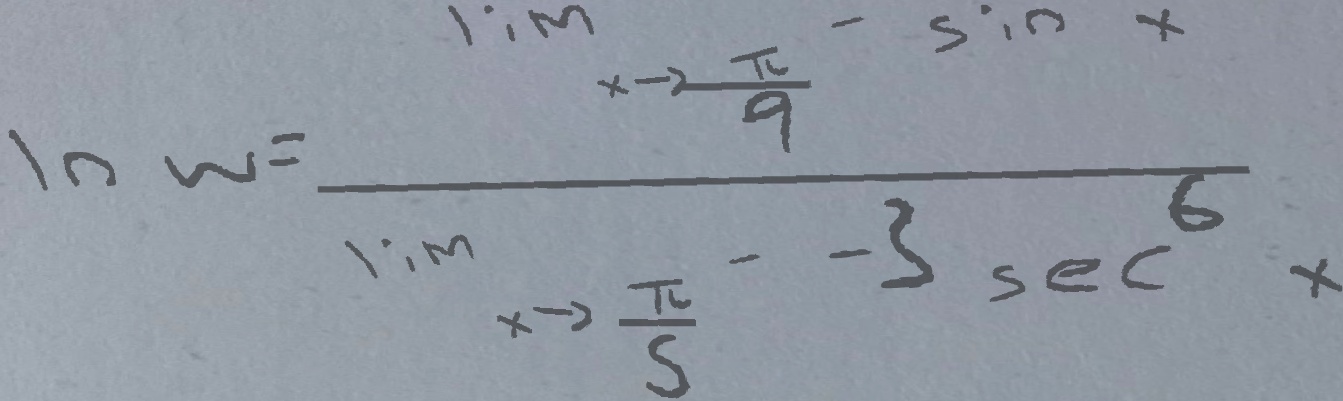 ln w = \frac{\lim_{x \to \frac{\pi}{9}^-} \sin x}{\lim_{x \to \frac{\pi}{5}^-} -3 \sec^6 x}